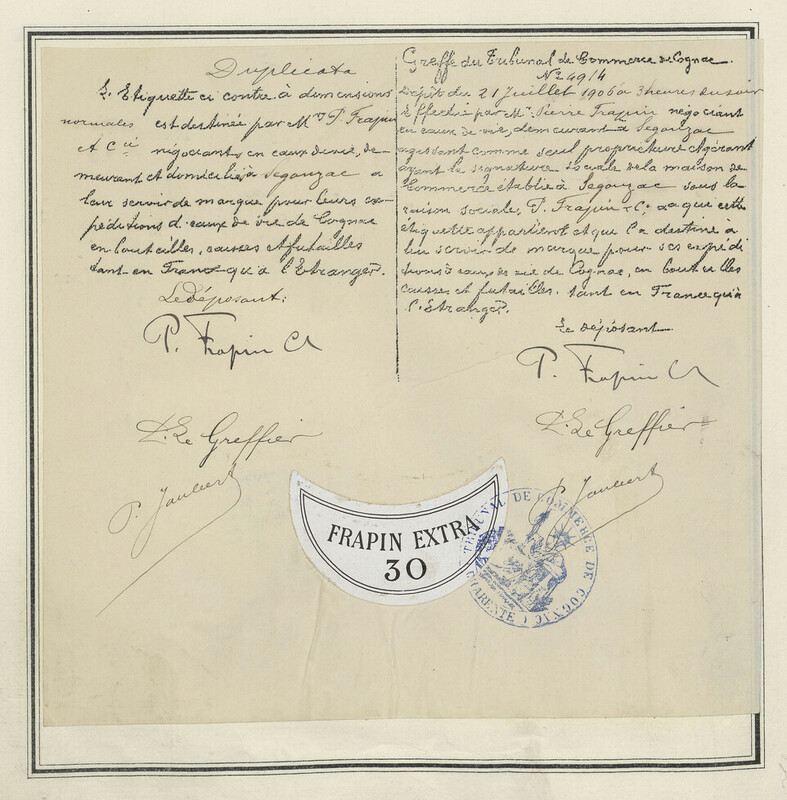 Duplicata
L'Etiquette ci contre à dimensions
normales est destinée par Mrs P. Frapin
et Cie négociants en eaux de vie, de-
meurant et domiciliés à Segonzac à
leur servir de marque pour leurs ex-
péditions d'eaux de vie de Cognac
en bouteilles, caisses et futailles
tant en France qu'à l'Etranger.
Le déposant:
P. Frapin Cie
P. Le Greffier
P. Jaulert
Greffe du Tribunal de Commerce de Cognac.
No 4914
Dépôt du 21 Juillet 1906 à 3 heures du soir
Effectué par Mr Pierre Frapin négociant
en eaux de vie, demeurant à Segonzac
agissant comme seul propriétaire et gérant
ayant la signature sociale de la maison de
Commerce établie à Segonzac sous la
raison sociale, P. Frapin & Cie, que cette
étiquette appartient et qu'il a destiné à
lui servir de marque pour ses expédi
tions d'eaux de vie de Cognac, en bouteilles
caisses et futailles. tant en France qu'à
l'Etranger.
Le déposant
P. Frapin Cie
P. Le Greffier
P. Jaulert
FRAPIN EXTRA
30
TRIBUNAL DE COMMERCE DE COGNAC
(CHARENTE)